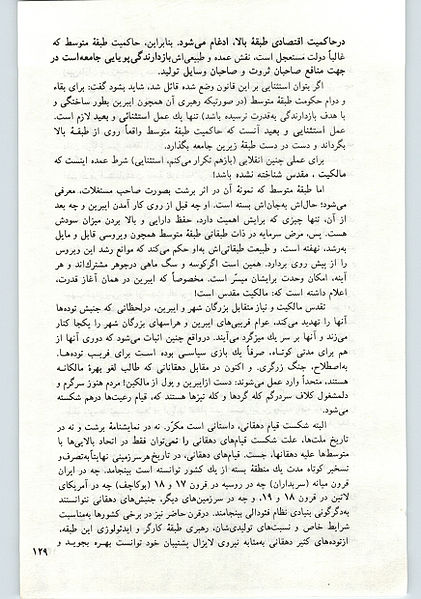 درحاکمیت اقتصادی طبقهٔ بالا، ادغام می‌شود. بنابراین، حاکمیت طبقهٔ متوسط که
غالباً دولت مستعجل است، نقش عمده و طبیعی‌اش بازدارندگی پویایی جامعه‌است در
جهت منافع صاحبان ثروت و صاحبان وسایل تولید.
اگر بتوان استثنایی بر این قانون وضع شده قائل شد، شاید بشود گفت: برای بقاء
و دوام حکومت طبقهٔ متوسط (در صورتیکه رهبری آن همچون ایبرین بطور ساختگی و
با هدف بازدارندگی به‌قدرت نرسیده باشد) تنها یك عمل استثنائی و بعید لازم است.
عمل استثنایی و بعید آنست که حاکمیت طبقهٔ متوسط واقعاً روی از طبقهٔ بالا
بگرداند و دست در دست طبقهٔ زیرین جامعه بگذارد.
برای عملی چنین انقلابی (بازهم تکرار می‌کنم، استثنایی) شرط عمده اینست که
مالکیت ، مقدس شناخته نشده باشد!
اما طبقهٔ متوسط که نمونهٔ آن در اثر برشت بصورت صاحب مستغلات، معرفی
می‌شود؛ حال‌اش به‌جان‌اش بسته است. او چه قبل از روی کار آمدن ایبرین و چه بعد
از آن، تنها چیزی که برایش اهمیت دارد، حفظ دارایی و بالا بردن میزان سودش
هست. پس، مرض سرمایه در ذات طبقاتی طبقهٔ متوسط همچون ویروسی قابل و مایل
به‌رشد، نهفته است. و طبیعت طبقاتی‌اش به‌او حکم می‌کند که موانع رشد این ویروس
را از پیش روی بردارد. همین است اگرکوسه و سگ ماهی درجوهر مشترك‌اند و هر
آینه، امکان وحدت برایشان میسّر است. مخصوصاً که ایبرین در همان آغاز قدرت،
اعلام داشته است که: مالکیت مقدس است!
تقدس مالکیت و نیاز متقابل بزرگان شهر و ایبرین، درلحظاتی که جنبش توده‌ها
آنها را تهدید می‌کند، عوام فریبی‌های ایبرین و هراسهای بزرگان شهر را یکجا کنار
می‌زند و آنها بر سر یك میزگرد می‌آیند. درواقع جنین اثبات می‌شود که دوری آنها از
هم برای مدتی کوتاه، صرفاً یك بازی سیاسی بوده است برای فریب توده‌ها.
به‌اصطلاح، جنگ زرگری. و اکنون در مقابل دهقانانی که طالب لغو بهرهٔ مالکانه
هستند، متحداً وارد عمل می‌شوند: دست ازایبرین و پول از مالکین! مردم هنوز سرگرم و
دلمشغول کلاف سردرگم کله گردها و کله تیزها هستند که، قیام رعیت‌ها درهم شکسته
می‌شود.
البته شکست قیام دهقانی، داستانی است مکرّر. نه در نمایشنامهٔ برشت و نه در
تاریخ ملت‌ها، علت شکست قیام‌های دهقانی را نمی‌توان فقط در اتحاد بالایی‌ها با
متوسط‌ها علیه دهقانها، جست. قیام‌های دهقانی، در تاریخ هرسرزمینی نهایتاً به‌تصرف و
تسخیر کوتاه مدت یك منطقهٔ بسته از یك کشور توانسته است بینجامد. چه در ایران
قرون میانه (سربداران) چه در روسیه در قرون ۱۷ و ۱۸ (پوگاچف) چه در آمریکای
لاتین در قرون ۱۸ و ۱۹. و چه در سرزمین‌های دیگر، جنبش‌های دهقانی نتوانستند
به‌دگرگونی بنیادی نظام فئودالی بینجامند. درقرن حاضر نیز در برخی کشورها به‌مناسبت
شرایط خاص و نسبت‌های تولیدی‌شان، رهبری طبقهٔ کارگر و ایدئولوژی این طبقه،
ازتوده‌های کثیر دهقانی به‌مثابه نیروی لایزال پشتیبان خود توانست بهره بجوید و
۱۲۹